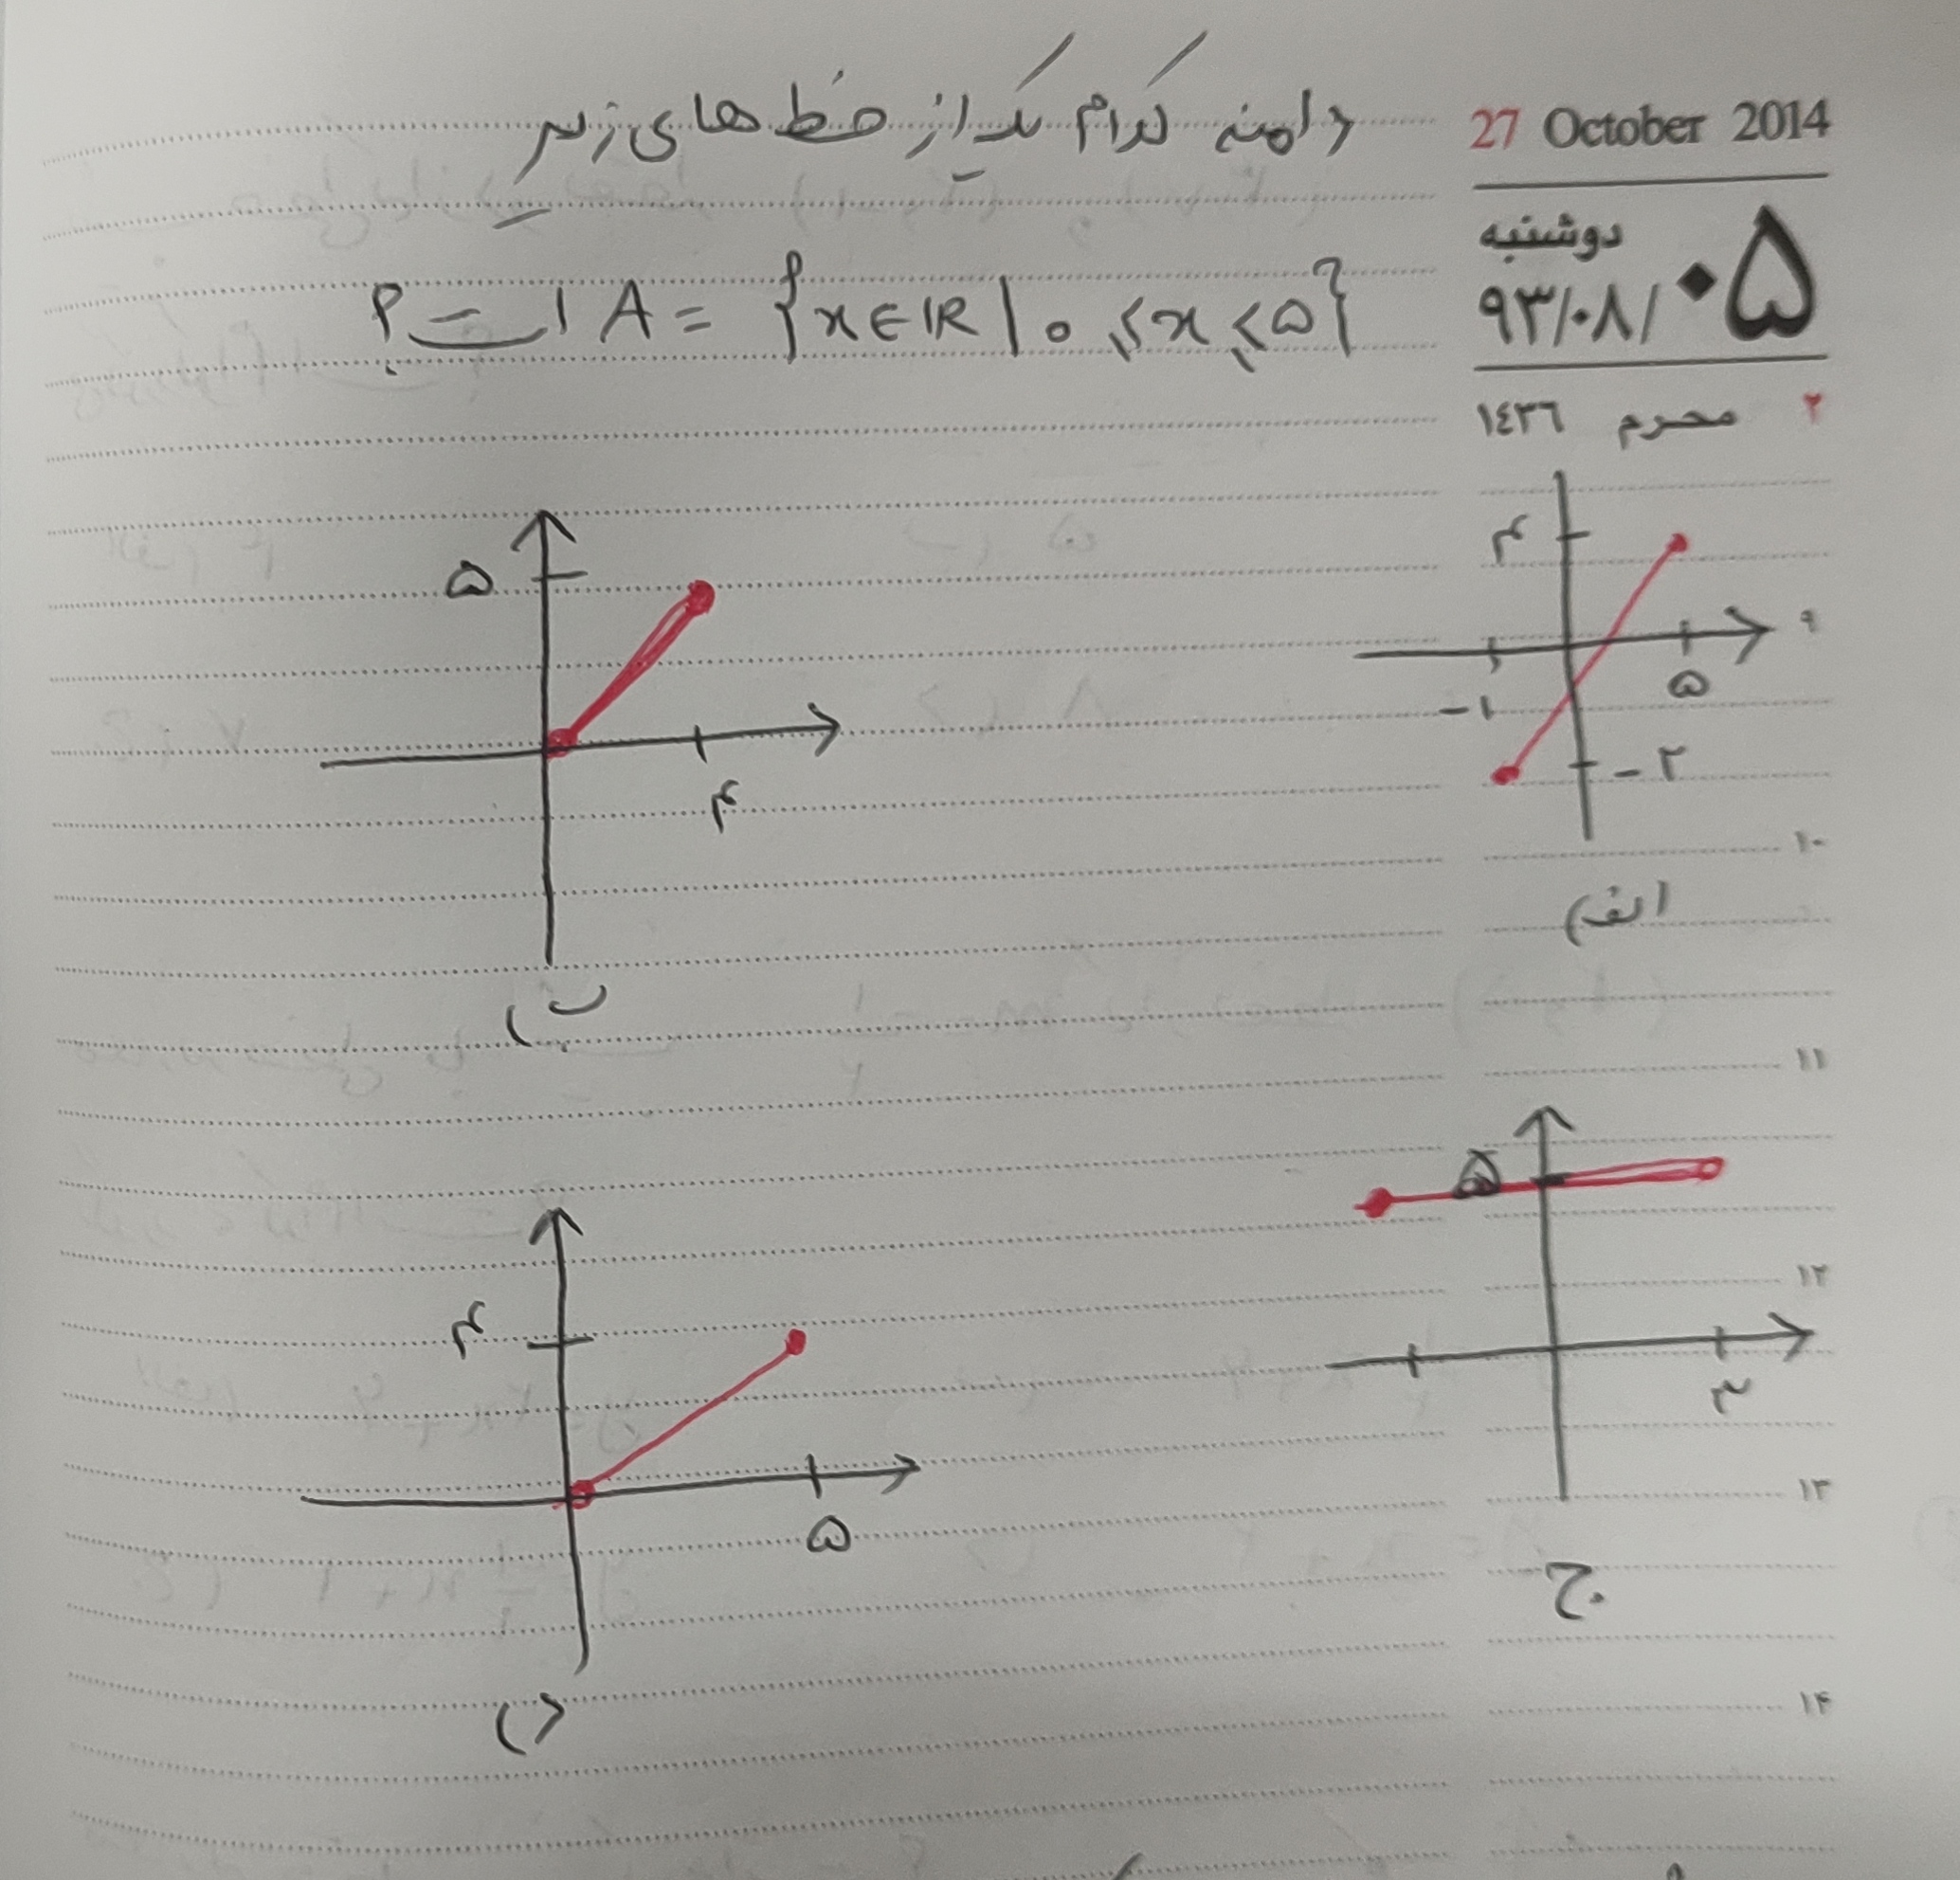 27 October 2014
دوشنبه
۹۳/۰۸/۰۵
۲ محرم ١٤٣٦
دامنه کدام یک از خط های زیر
A = {x ∈ IR | ۰ ⩽ x ⩽ ۵} است؟
۴
۵
-۱
-۲
الف)
۵
۴
ب)
۵
۳
ج
۴
۵
د)
۹
۱۰
۱۱
۱۲
۱۳
۱۴